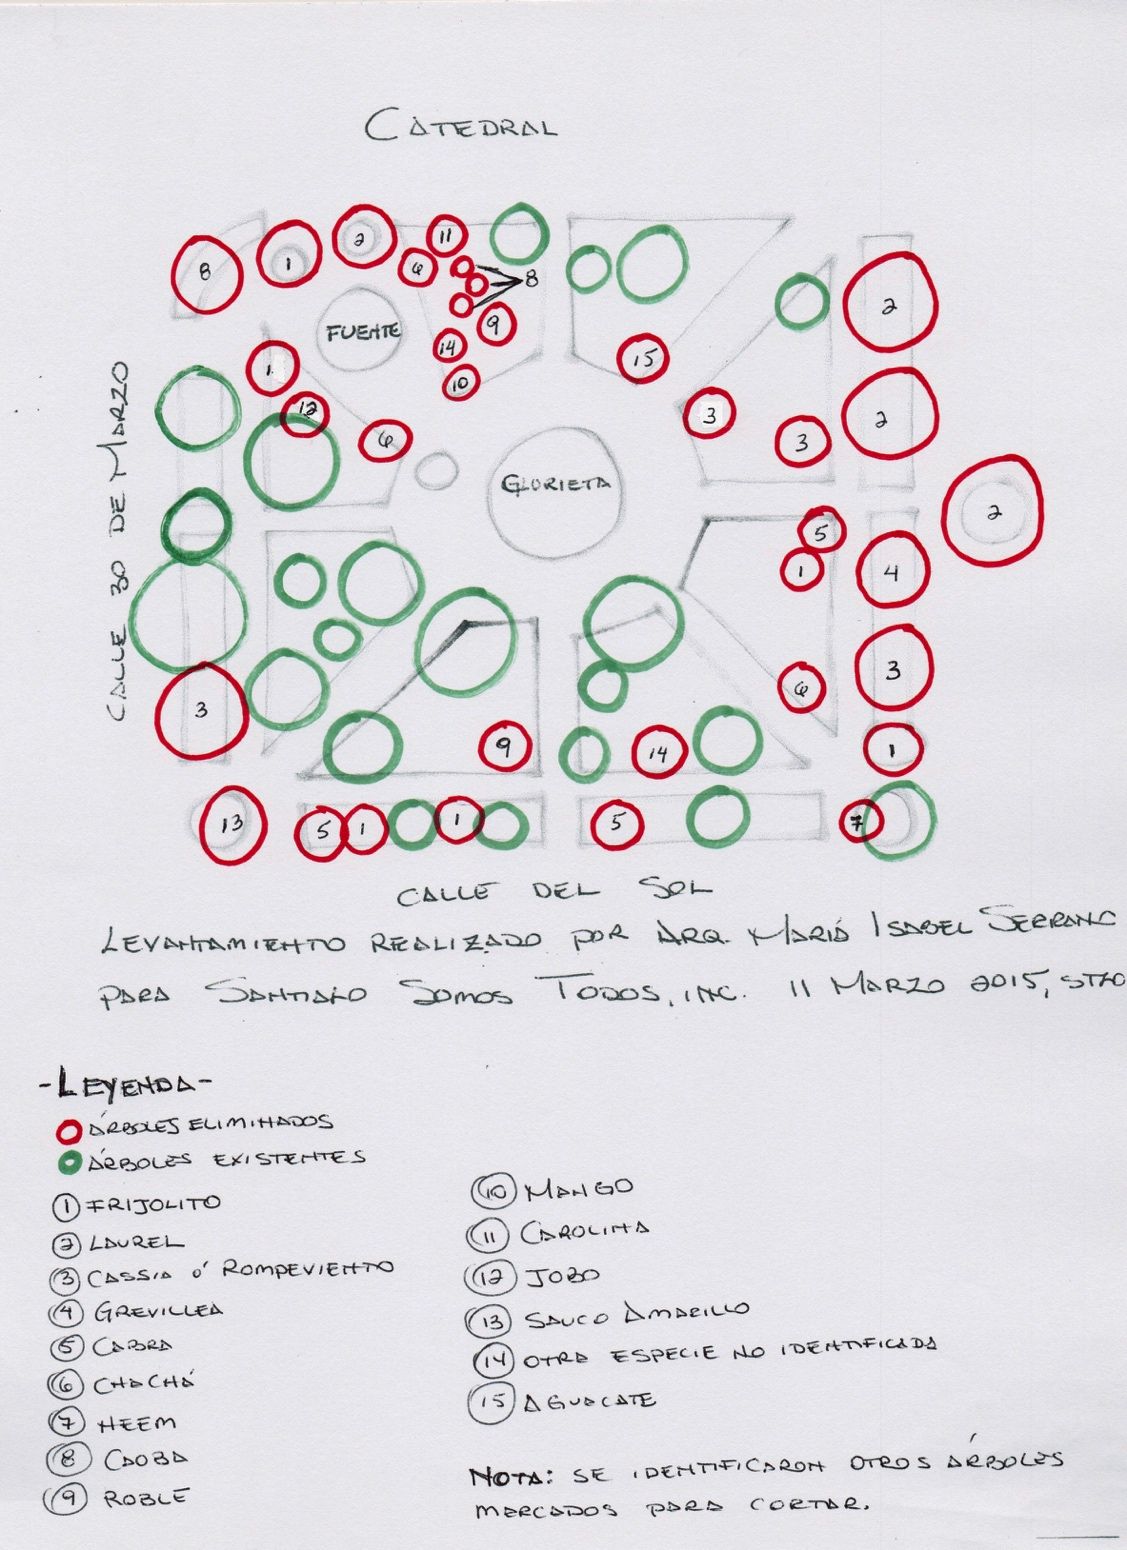 CATEDRAL
8
1
2
11
6
8
FUENTE
9
14
10
15
2
1
12
6
3
3
2
GLORIETA
2
CALLE 30 DE MARZO
5
1
4
3
6
3
9
14
1
13
5
1
1
5
7
CALLE DEL SOL
LEVANTAMIENTO REALIZADO POR ARQ. MARIÁ ISABEL SERRANO
PARA SANTIAGO SOMOS TODOS, INC. 11 MARZO 2015, STGO
-LEYENDA-
ÁRBOLES ELIMINADOS
ÁRBOLES EXISTENTES
1 FRIJOLITO
2 LAUREL
3 CASSIA Ó ROMPEVIENTO
4 GREVILLEA
5 CABRA
6 CHACHÁ
7 NEEM
8 CAOBA
9 ROBLE
10 MANGO
11 CAROLINA
12 JOBO
13 SAUCO AMARILLO
14 OTRA ESPECIE NO IDENTIFICADA
15 AGUACATE
NOTA: SE IDENTIFICARON OTROS ÁRBOLES
MARCADOS PARA CORTAR.